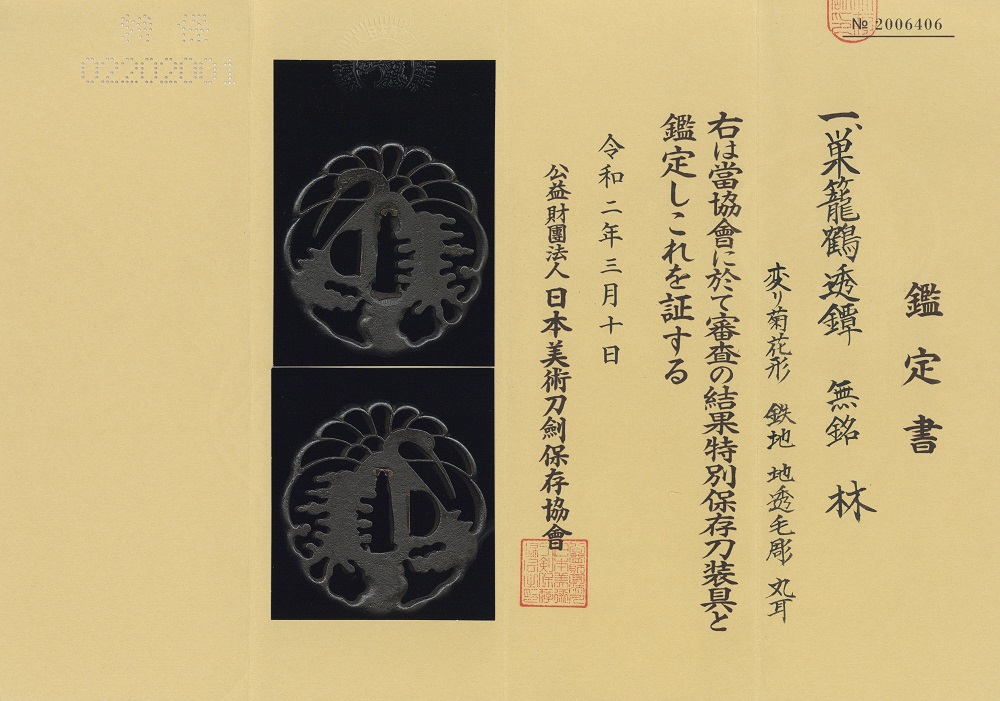 № 2006406
鑑定書
一、巣籠鶴透鐔 無銘 林
変り菊花形 鉄地 地透毛彫 丸耳
右は當協會に於て審査の結果特別保存刀装具と
鑑定しこれを証する
令和二年三月十日
公益財團法人 日本美術刀劍保存協會
特保
02202001